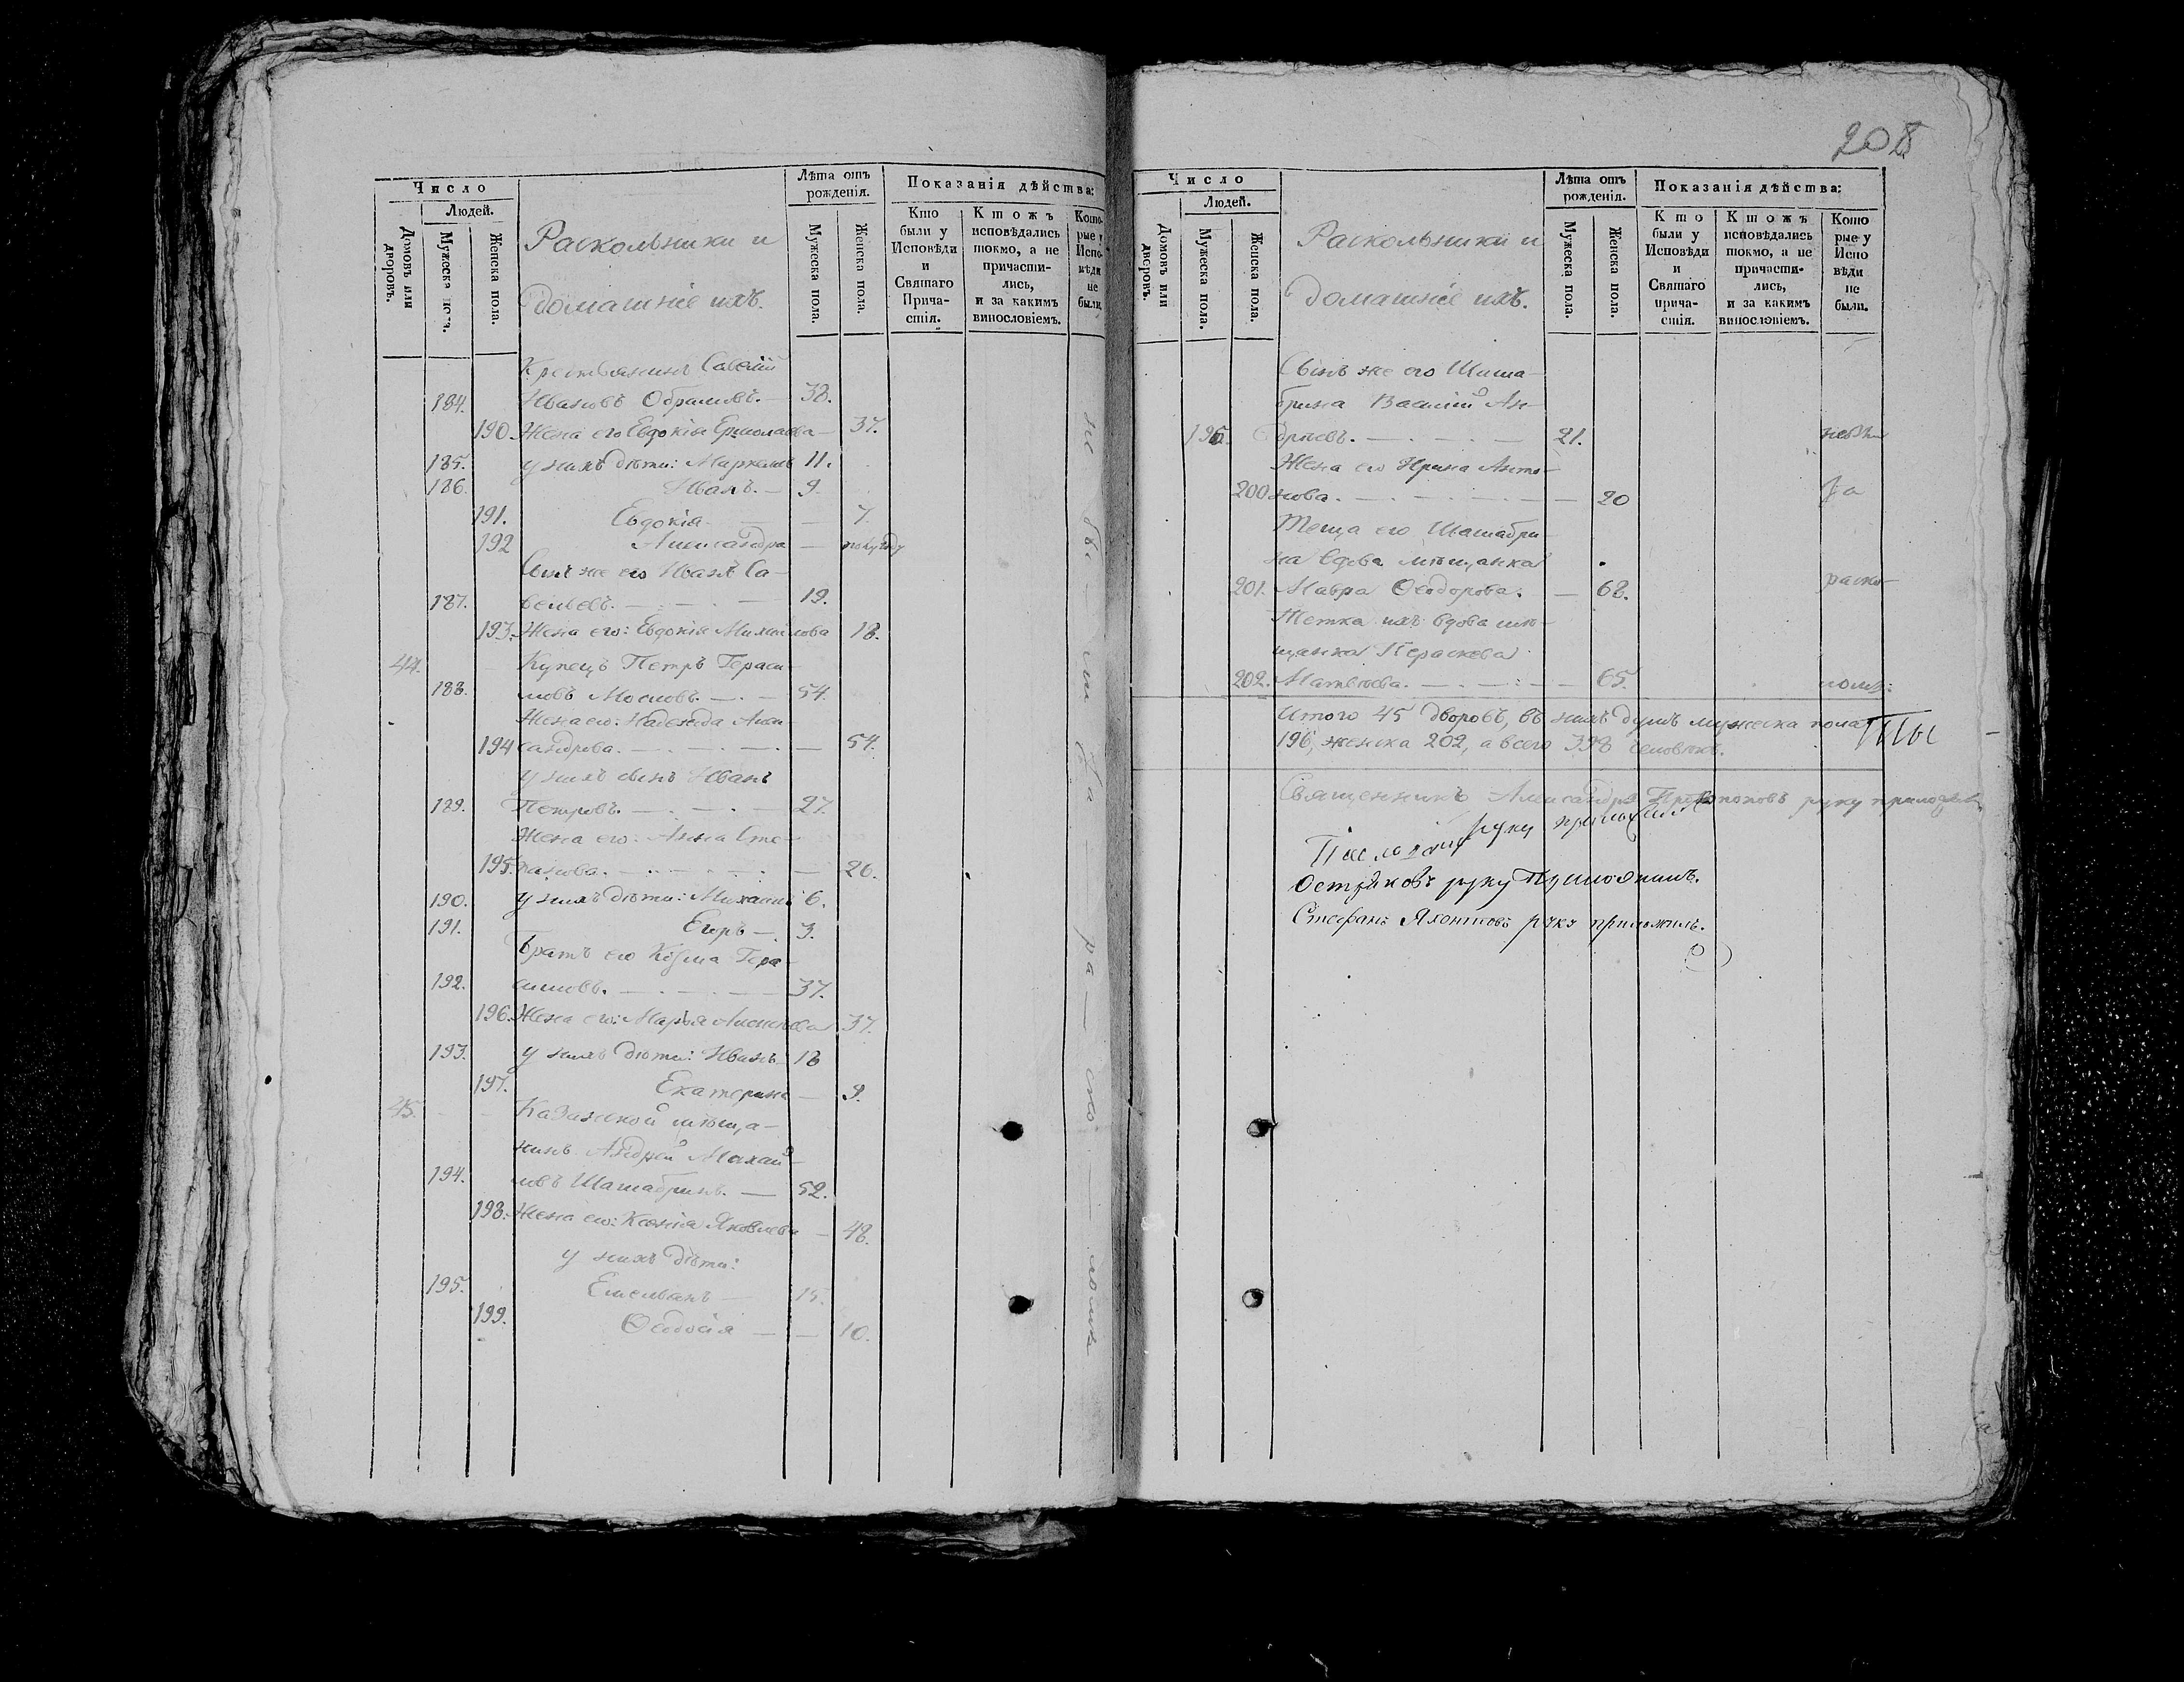 Число
Людей.
Домовъ или дворовъ.
Мужеска пола.
Женска пола.
Раскольники и
домашніе ихъ.
Лѣта отъ
рожденія.
Мужеска пола.
Женска пола.
Показанія дѣйства:
Кто
были у
Исповѣди
и
Святаго
Прича-
стія.
Ктожъ
исповѣдались
токмо, а не
причасти-
лись,
и за какимъ
винословіемъ.
Кото-
рые у
Испо-
вѣди
не
были.
Крестьянинъ Савелій
184. Ивановъ Обрамовъ. — 38.
190. Жена его Евдокія Ермолаева — 37.
185. у нихъ дѣти: Маркелъ 11.
186. Иванъ. — 9.
191. Евдокія — 7.
192 Александра —
Сынъ же его Иванъ Са-
187. вельевъ. — 19.
193. Жена его: Евдокія Михайлова 18.
44. Купецъ Петръ Гераси-
188. мовъ Мосновъ. — 54.
Жена его: Надежда Алек-
194 сандрова. — 54.
у нихъ сынъ Иванъ
189. Петровъ. — 27.
Жена его: Анна Сте-
195. панова. — 26.
190. у нихъ дѣти: Михаилъ 6.
191. Егоръ — 3.
Братъ его Козма Гера-
192. симовъ. — 37.
196. Жена его: Марья Алексѣева 37.
193. у нихъ дѣти: Иванъ 18
197. Екатерина — 9.
45. Казанской мѣща-
нинъ Андрей Михай-
194. ловъ Шатабринъ. — 52.
198. Жена его: Ксенія Яковлева — 48.
у нихъ дѣти:
195. Емельянъ — 15.
199. Ѳеодосія — 10.
не бы ли за ра — ско — ломъ
208
Число
Людей.
Домовъ или дворовъ.
Мужеска пола.
Женска пола.
Раскольники и
домашніе ихъ.
Лѣта отъ
рожденія.
Мужеска пола.
Женска пола.
Показанія дѣйства:
Кто
были у
Исповѣди
и
Святаго
прича-
стія.
Ктожъ
исповѣдались
токмо, а не
причасти-
лись,
и за какимъ
винословіемъ.
Кото
рые у
Испо
вѣди
не
были.
Сынъ же его Шата-
брина Василій Ан-
196. дреевъ. — 21. небыли
Жена его Ирина Анто-
200 нова. — 20 за
Теща его Шатабри-
на вдова мѣщанка
201. Мавра Ѳеодорова. — 68. раско-
Тетка ихъ вдова мѣ-
щанка Параскева
202. Матвѣева. — 65. ломъ:
Итого 45 дворовъ, въ нихъ душъ мужеска пола
196, женска 202, а всего 398 человѣкъ.
Священникъ Александръ Протопоповъ руку приложилъ
руку приложилъ
Остряковъ руку приложилъ.
Стефанъ Яхонтовъ руку приложилъ.